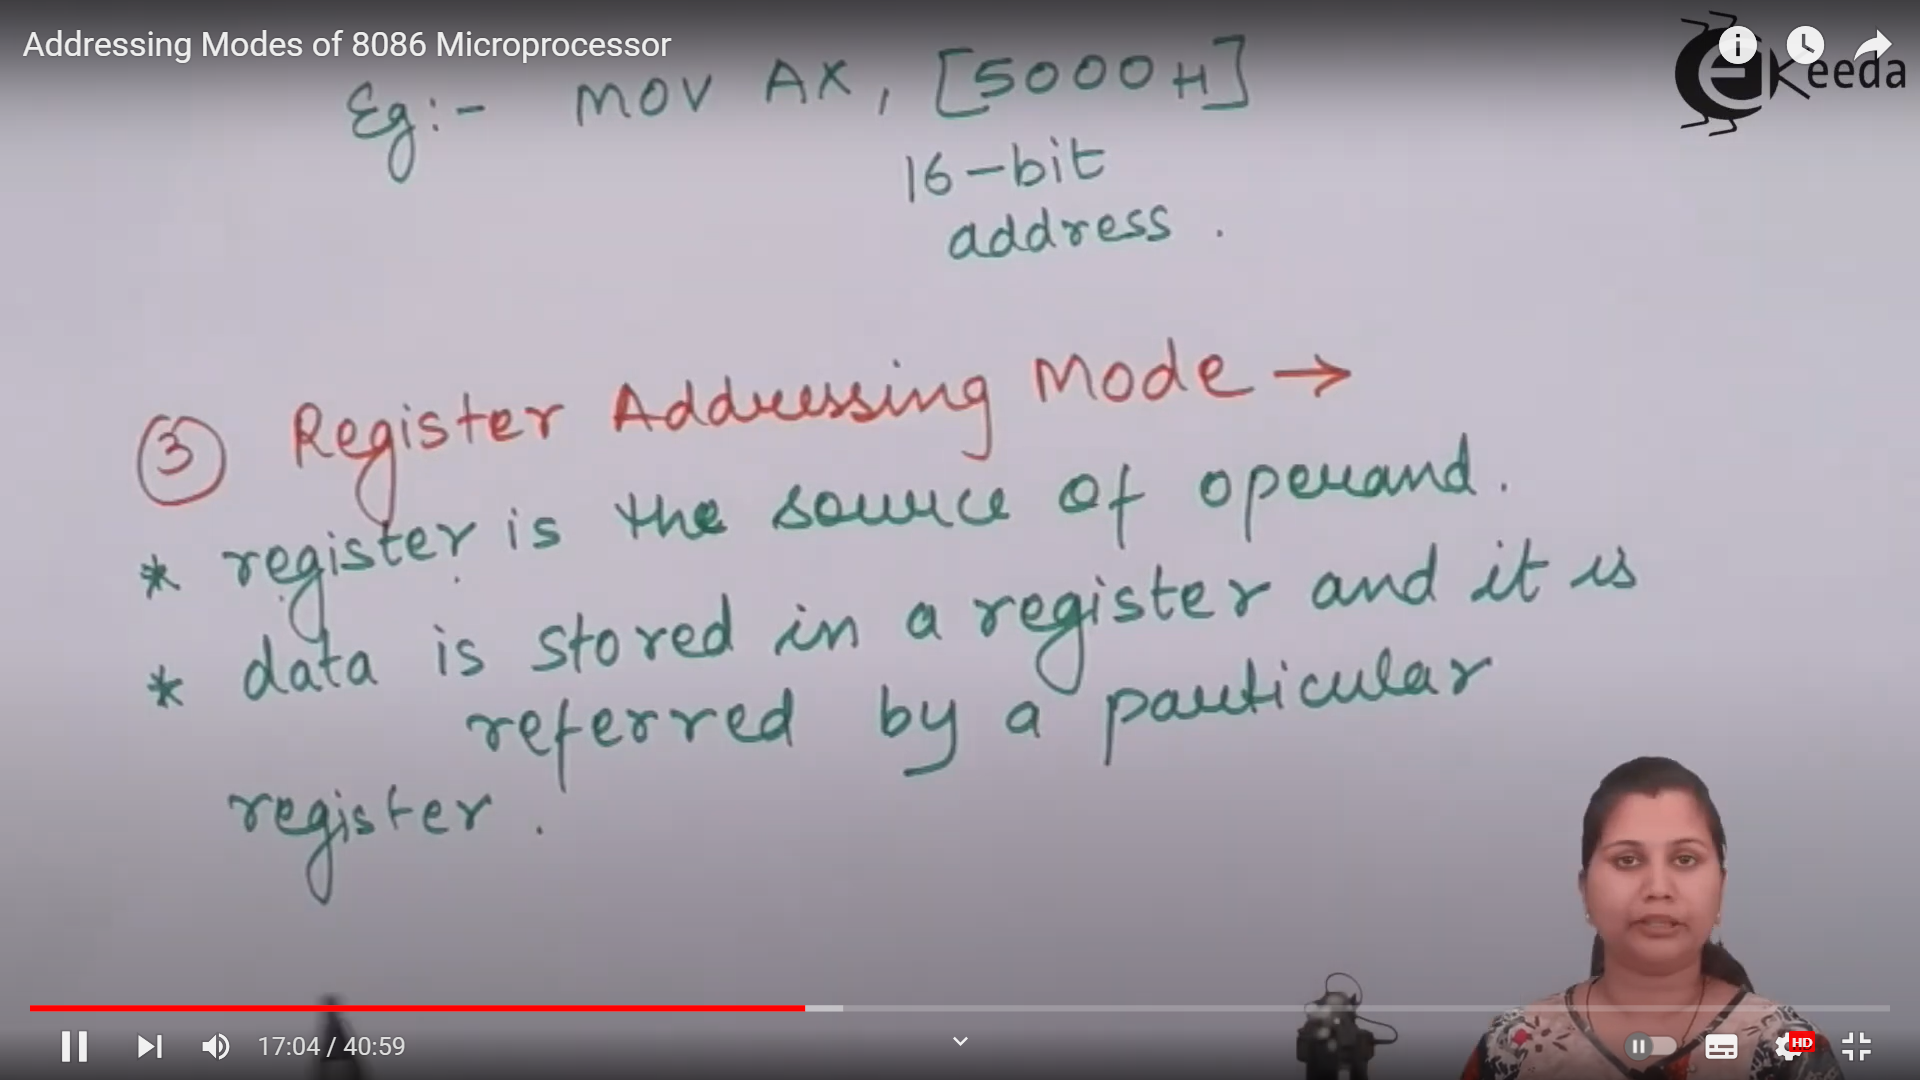 Addressing Modes of 8086 Microprocessor
eKeeda
Eg:- MOV AX, [5000H]
16-bit
address.
3 Register Addressing Mode →
* register is the source of operand.
* data is stored in a register and it is
referred by a particular
register.
17:04 / 40:59
HD